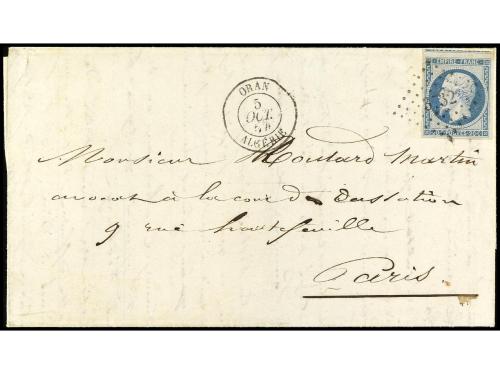 ORAN
5
OCT.
54
ALGÉRIE
EMPIRE FRANC
Monsieur Moutard Martin
avocat à la cour de Cassation
9 rue hautefeuille
Paris.